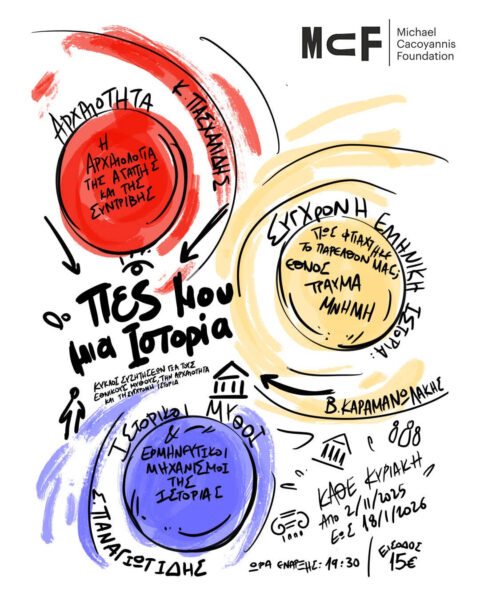 MCF
Michael
Cacoyannis
Foundation
ΑΡΧΑΙΟΤΗΤΑ
Κ. ΠΑΣΧΑΛΙΔΗΣ
Η
ΑΡΧΑΙΟΛΟΓΙΑ
ΤΗΣ ΑΓΑΠΗΣ
ΚΑΙ ΤΗΣ
ΣΥΝΤΡΙΒΗΣ
ΣΥΓΧΡΟΝΗ ΕΛΛΗΝΙΚΗ ΙΣΤΟΡΙΑ:
ΠΩΣ ΦΤΙΑΧΤΗΚΕ
ΤΟ ΠΑΡΕΛΘΟΝ ΜΑΣ;
ΕΘΝΟΣ
ΤΡΑΥΜΑ
ΜΝΗΜΗ
Β. ΚΑΡΑΜΑΝΩΛΑΚΗΣ
ΠΕΣ ΜΟΥ
μια Ιστορία
ΚΥΚΛΟΣ ΣΥΖΗΤΗΣΕΩΝ ΓΙΑ ΤΟΥΣ
ΕΘΝΙΚΟΥΣ ΜΥΘΟΥΣ, ΤΗΝ ΑΡΧΑΙΟΤΗΤΑ
ΚΑΙ ΤΗ ΣΥΓΧΡΟΝΗ ΙΣΤΟΡΙΑ
ΙΣΤΟΡΙΚΟΙ ΜΥΘΟΙ
&
ΕΡΜΗΝΕΥΤΙΚΟΙ
ΜΗΧΑΝΙΣΜΟΙ
ΤΗΣ
ΙΣΤΟΡΙΑΣ
Σ. ΠΑΝΑΓΙΩΤΙΔΗΣ
ΚΑΘΕ ΚΥΡΙΑΚΗ
ΑΠΟ 2/11/2025
ΕΩΣ 18/1/2026
ΩΡΑ ΕΝΑΡΞΗΣ: 19:30
ΕΙΣΟΔΟΣ
15€